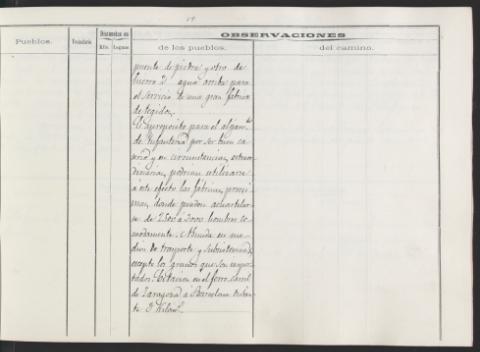 OBSERVACIONES
Pueblos.
Distancias en
Km.
Leguas
de los pueblos.
del camino.
puente de piedra y otro de
agua arriba para
el servicio de una gran fábrica
de tegidos.
Es apropósito para el alojam.to
de Infantería por ser buen ca
serío y en circunstancias extraor
dinarias, podrían utilizarse
á este efecto las fábricas próxi
mas, donde pueden acuartelar
se de 2500 á 3000 hombres có
modamente. Abunda en me
dios de transporte y subsistencias
excepto los granos que son
Estación en el ferro-carril
de Zaragoza á Barcelona
te 3 Kilom.s